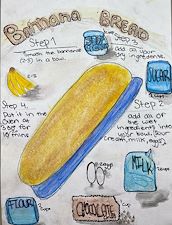 Banana BREAD
Step 1
Smash the bananas
(2-3) in a bowl.
Add all your
dry ingredients.
2-3
SUGAR
Step 4.
Put it in the
oven at
350 for
10 mins
Step 2
Add all of
the wet
ingredients into
your bowl. (sour
cream, milk, eggs).
2 eggs
MILK
FLOUR
CHOCOLATE
cup